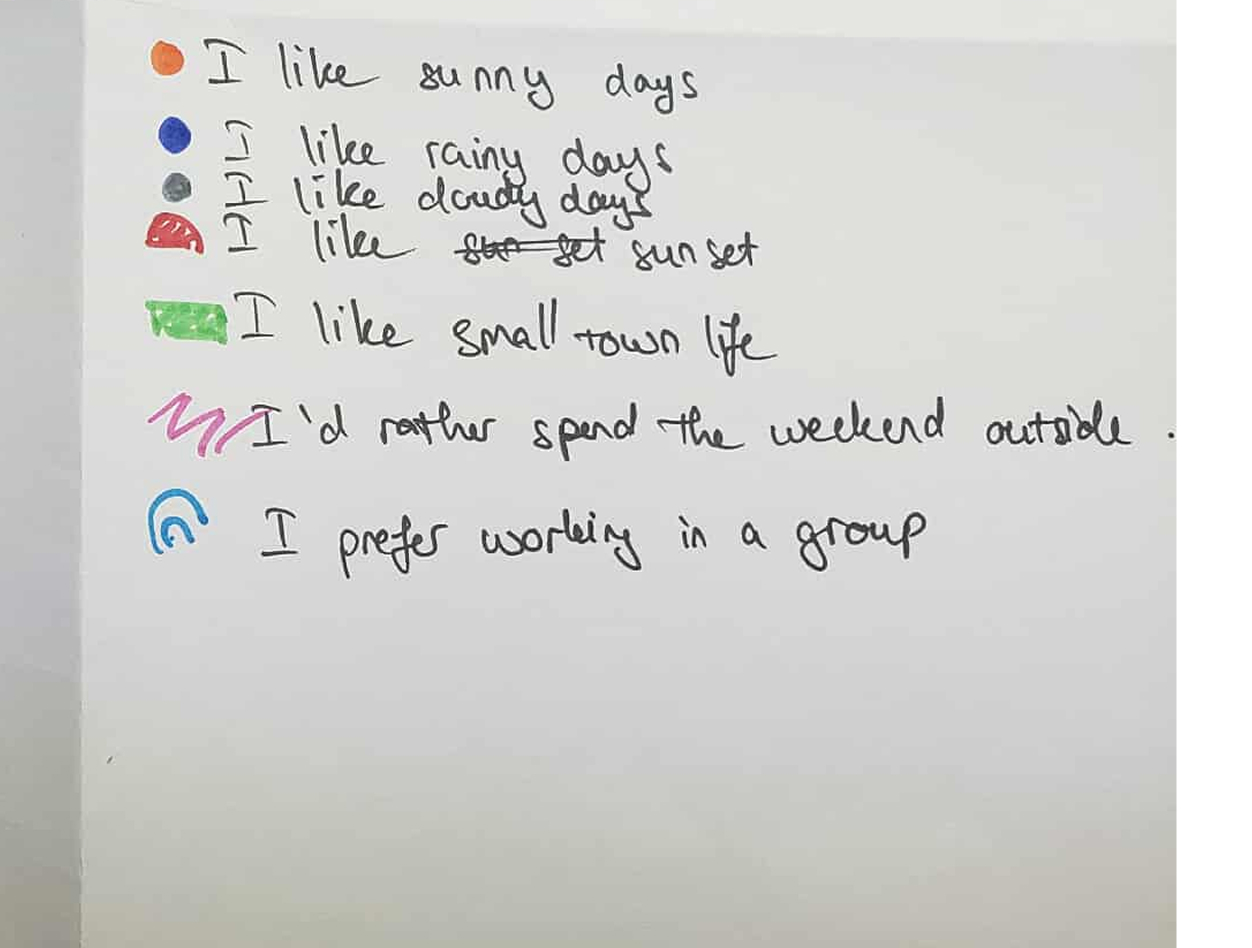 I like sunny days
I like rainy days
I like cloudy days
I like sun set sunset
I like small town life
I'd rather spend the weekend outside.
I prefer working in a group